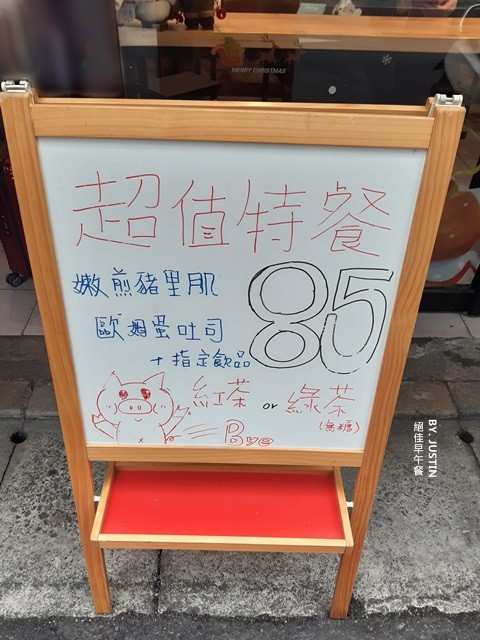 MERRY CHRISTMAS
超值特餐
嫩煎豬里肌
歐姆蛋吐司
85
+指定飲品
紅茶 or 綠茶
(無糖)
絕佳早午餐
BY. JUSTIN